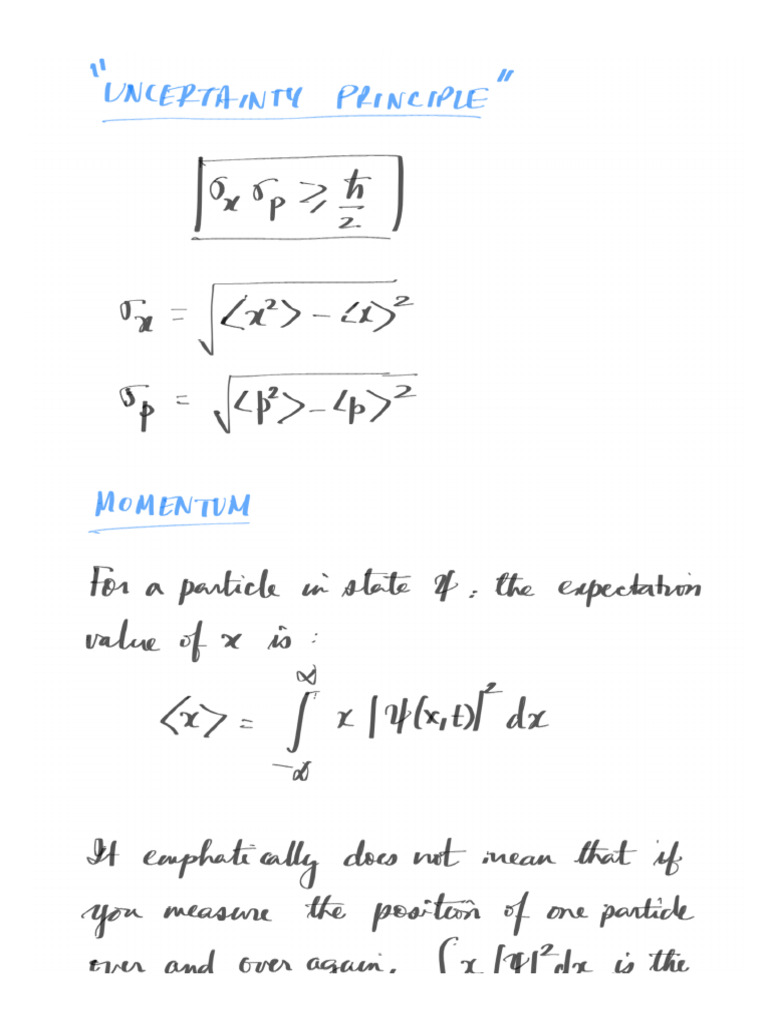 "UNCERTAINTY PRINCIPLE"
σₓ σₚ ⩾ ħ/2
σₓ = √(⟨x²⟩ - ⟨x⟩²)
σₚ = √(⟨p²⟩ - ⟨p⟩²)
MOMENTUM
For a particle in state ψ, the expectation
value of x is :
⟨x⟩ = ∫_{-∞}^{∞} x |Ψ(x,t)|² dx
It emphatically does not mean that if
you measure the position of one particle
over and over again. ∫x |Ψ|² dx is the